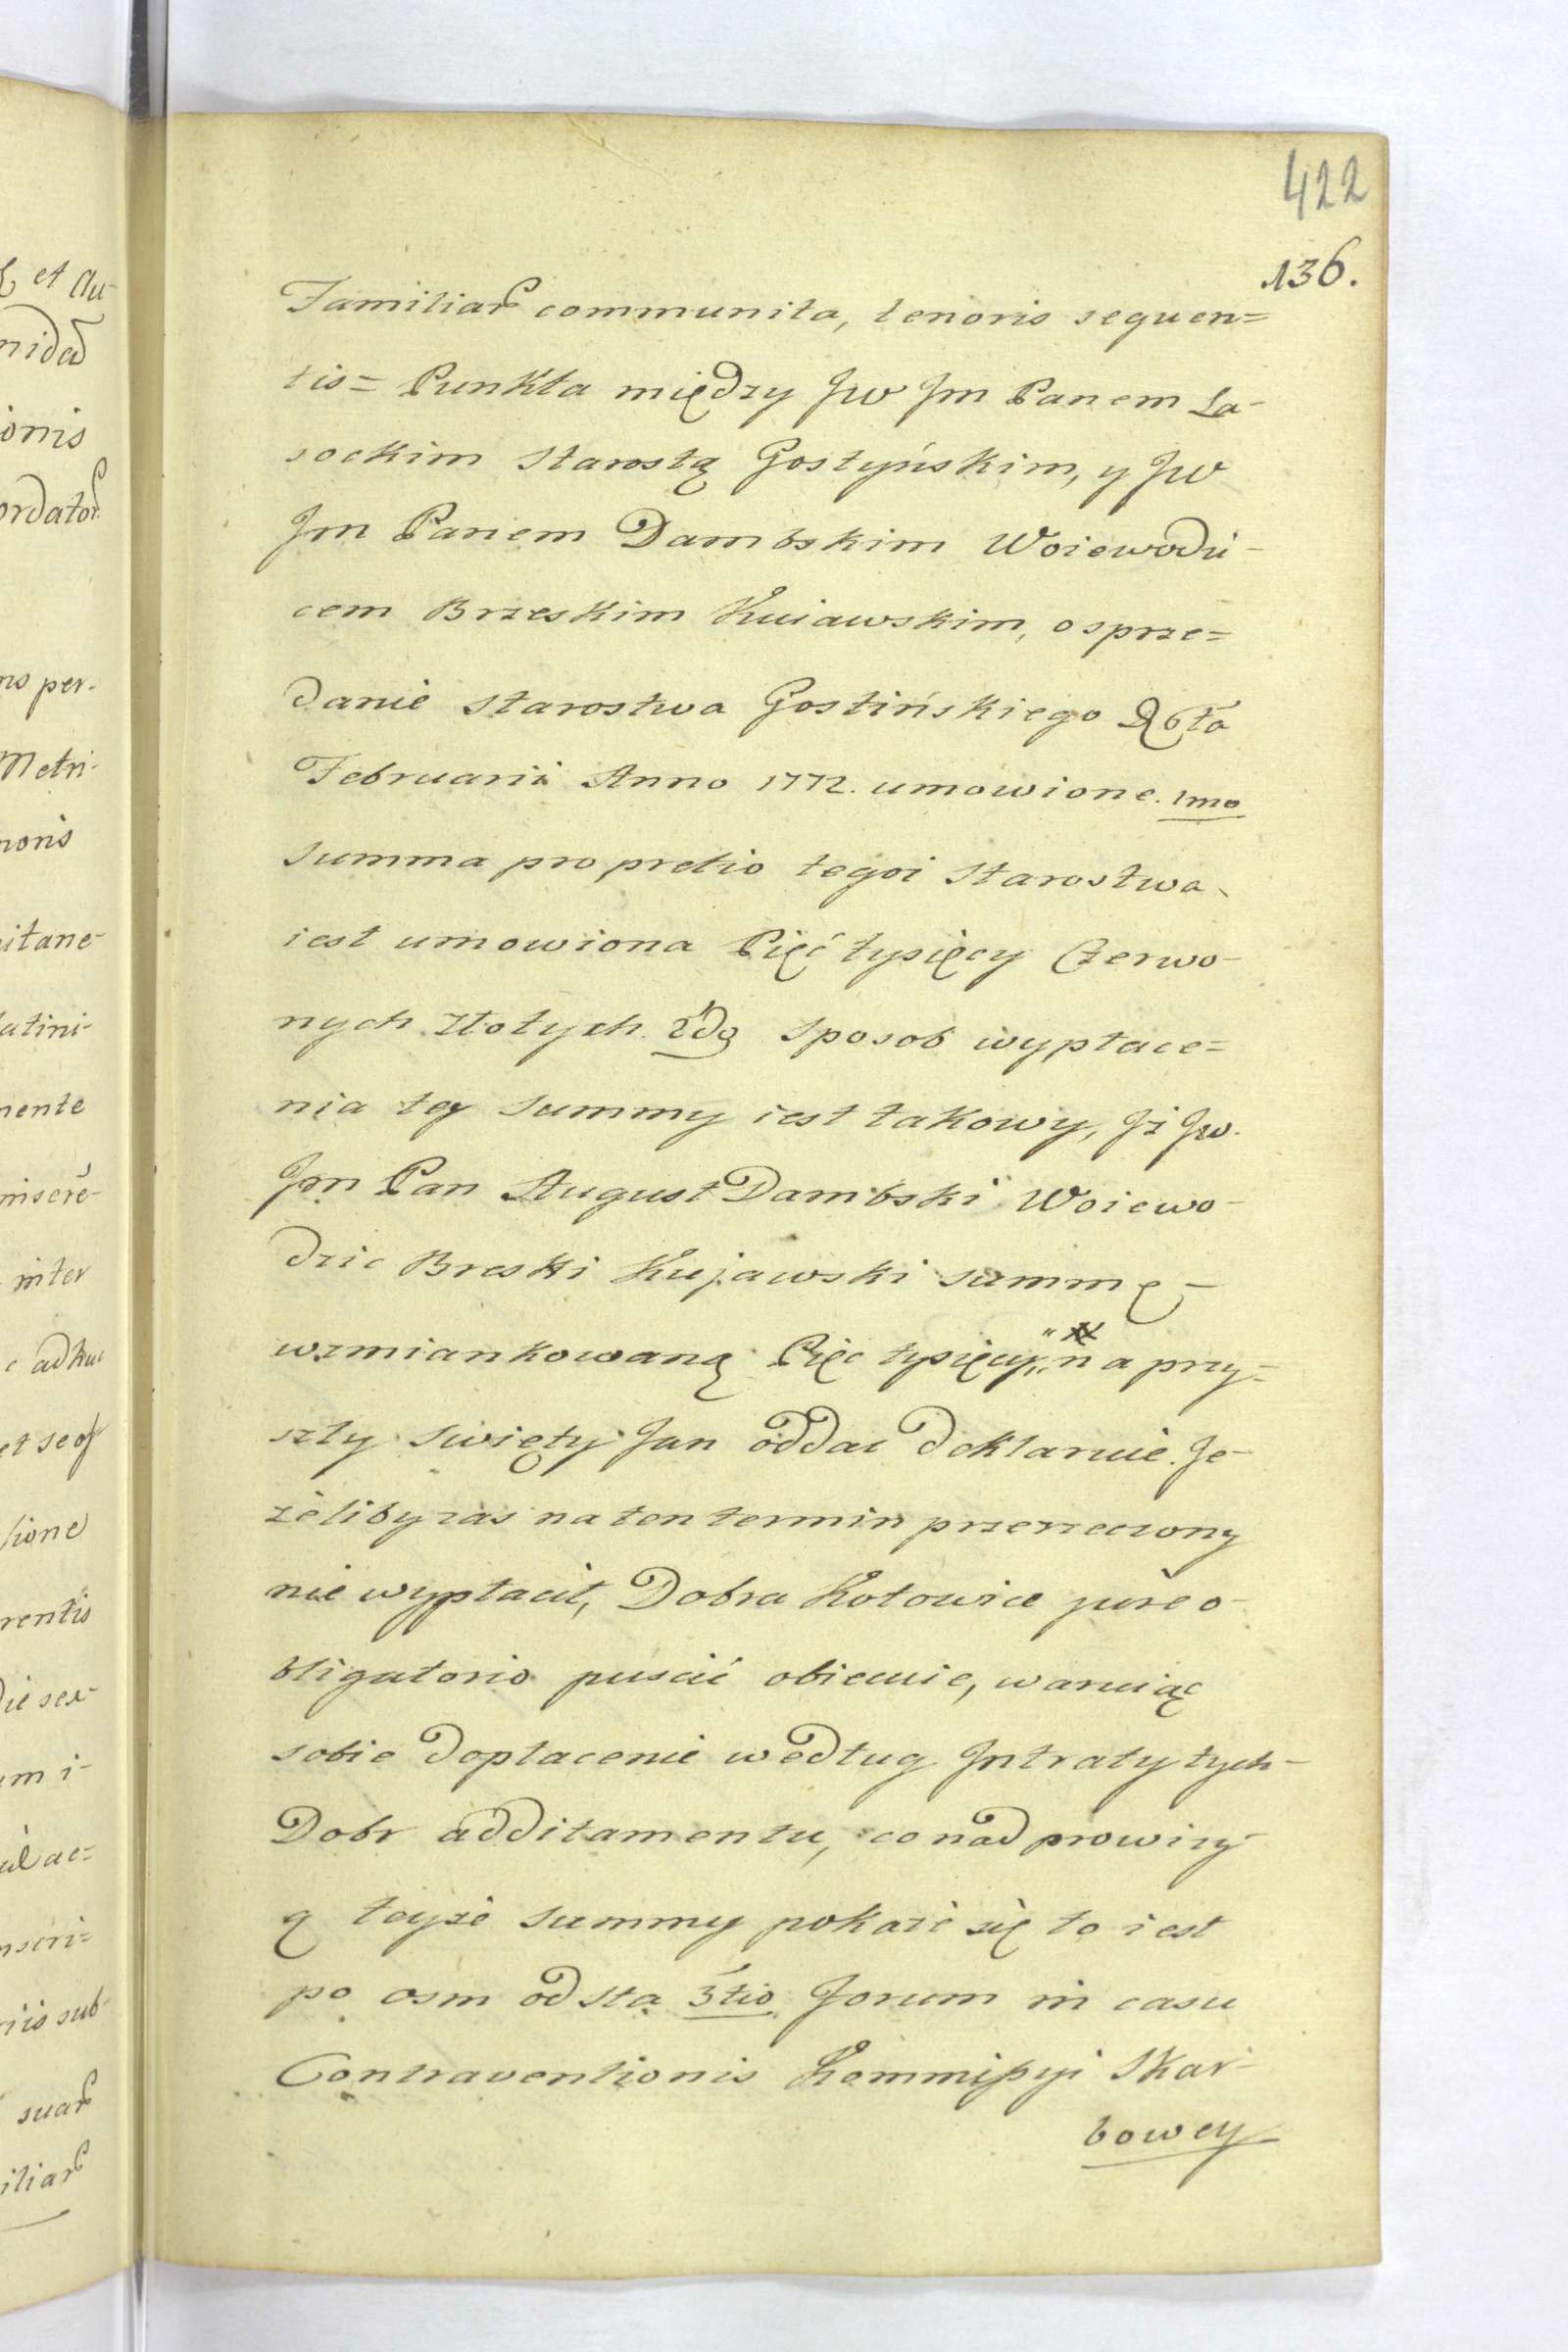 422
136.
Familiar communita, tenoris sequen=
tis= Punkta między Jw Jm Panem La-
sockim Starostą Gostyńskim, y Jw
Jm Panem Dambskim Woiewodzi-
cem Brzeskim Kuiawskim, o sprze=
danie Starostwa Gostińskiego D 6ta
Februarii Anno 1772. umowione. 1mo
Summa pro pretio tegoż Starostwa
iest umowiona Pięć tysięcy Czerwo-
nych Złotych. 2do Sposob wypłace=
nia tey Summy iest takowy, Jż Jw.
Jm Pan August Dambski Woiewo-
dzic Breski Kujawski summę
wzmiankowaną Pięc tysięcy na przy-
szły Swięty Jan oddac deklaruie. Je-
żeliby zas na ten termin przerzeczony
nie wypłacił, Dobra Kotowice jure o-
bligatorio puscić obiecuie, waruiąc
sobie dopłacenie według Jntraty tych-
Dobr additamentu, co nad prowizy-
ą teyże Summy pokaże się to iest
po osm od sta 3tio Forum in casu
Contraventionis Kommissyi Skar-
bowey
et Au-
nida
ionis
ordator
ns per-
Metri-
noris
itane-
latini-
mente
miscre-
inter
adhuc
sione
rentis
die sex-
um i-
ul ac=
nscri=
riis sub-
suar
iliar